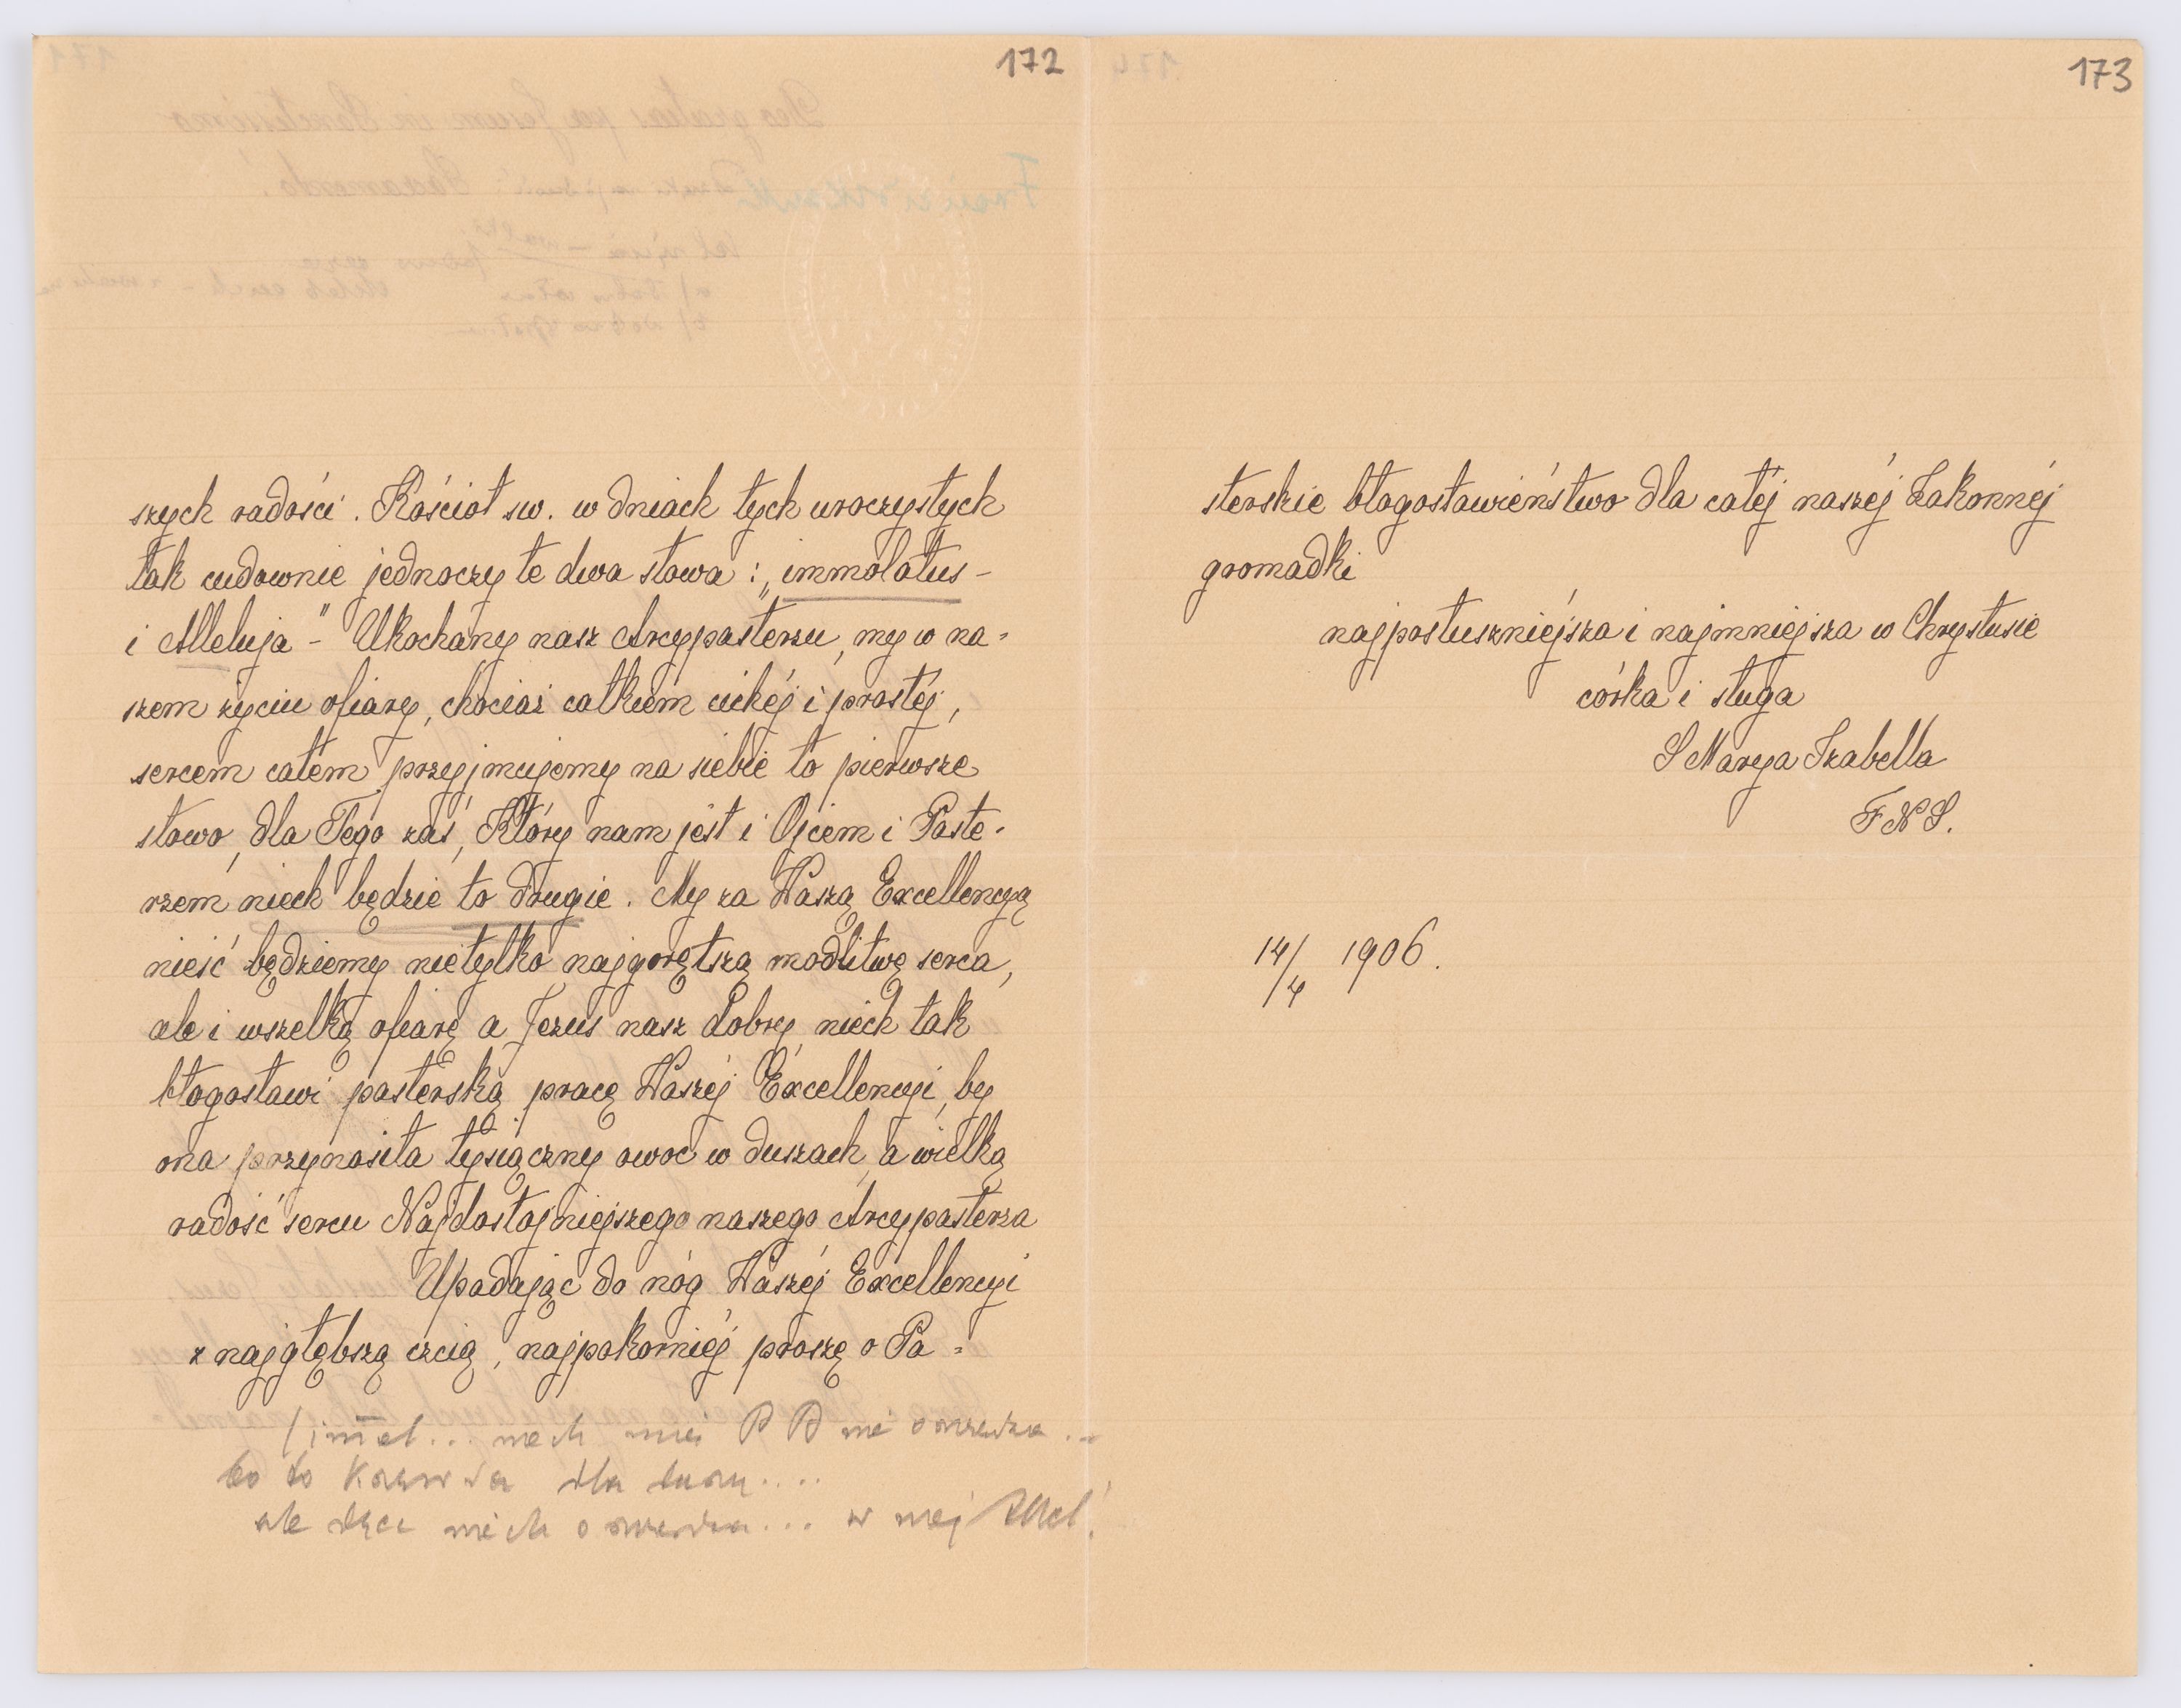 172
szych radości. Kościoł sw. w dniach tych uroczystych
tak cudownie jednoczy te dwa słowa: „immolatus -
i Alleluja" - Ukochany nasz Arcypasterzu, my w na-
szem życiu ofiary, chociaż całkiem cichéj i prostéj,
sercem całem przyjmujemy na siebie to pierwsze
słowo, dla Tego zaś, Który nam jest i Ojcem i Paste-
rzem niech będzie to drugie. My za Waszą Excellencyą
nieść będziemy nietylko najgorętszą modlitwę serca,
ale i wszelką ofiarę a Jezus nasz dobry niech tak
błogosławi pasterską pracę Waszéj Excellencyi, by
ona przynosiła tysiączny owoc w duszach, a wielką
radość sercu Najdostojniejszego naszego Arcypasterza
Upadając do nóg Waszéj Excellencyi
z najgłębszą czcią, najpokorniéj proszę o Pa-
bo to dla
ale niech w mej
173
sterskie błogosławieństwo dla całéj naszéj Zakonnéj
gromadki
najposłuszniejsza i najmniejsza w Chrystusie
córka i sługa
S Marya Izabella
F N S.
14/4 1906.